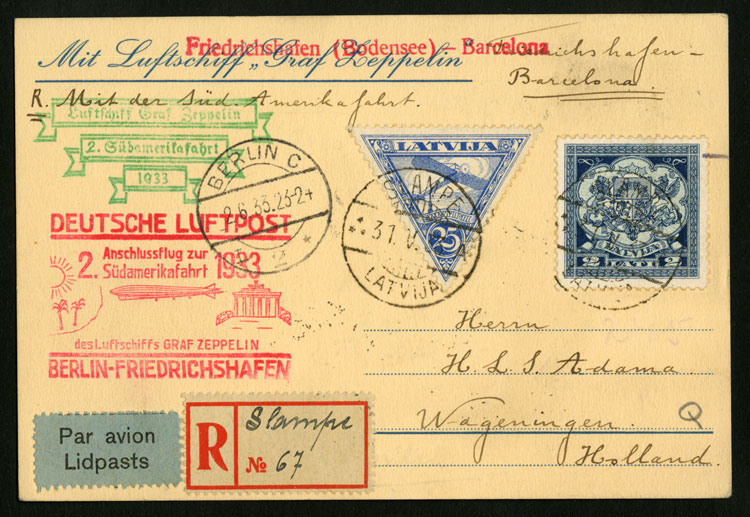 Friedrichshafen (Bodensee) – Barcelona
Mit Luftschiff „Graf Zeppelin"
Friedrichshafen-
Barcelona.
R. Mit der Süd. Amerikafahrt.
Luftschiff Graf Zeppelin
2. Südamerikafahrt
1933
BERLIN C
2.6.33.23-24
2
DEUTSCHE LUFTPOST
2. Anschlussflug zur Südamerikafahrt 1933
des Luftschiffs GRAF ZEPPELIN
BERLIN-FRIEDRICHSHAFEN
LATVIJA
25
31.V.
LATVIJA
LATVIJA
2 LATI 2
Herrn
H. L. S. Adama.
Wageningen.
Holland.
Par avion
Lidpasts
R
Stampe
№ 67